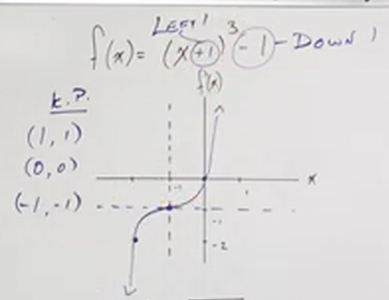 LEFT 1
f(x) = (x+1)³ -1 - DOWN 1
f(x)
K.P.
(1, 1)
(0, 0)
(-1, -1)
x
-1
1
-1
-2